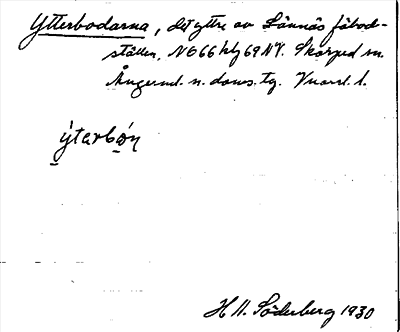 Ytterbodarna, det yttre av Lännäs fäbod-
ställen, NO66 Kbg 69NV. Skorped sn.
Ångerml. n. doms. tg.
ýtarbón
H N. Söderberg 1930